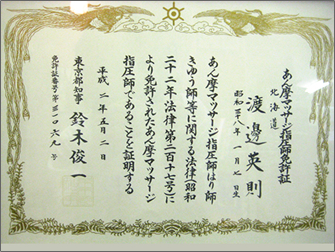 あん摩マッサージ指圧師免許証
北海道
渡邊英則
昭和三十八年一月七日生
あん摩マッサージ指圧師はり師
きゆう師等に関する法律(昭和
二十二年法律第二百十七号)に
より免許されたあん摩マッサージ
指圧師であることを証明する
平成二年五月二日
東京都知事 鈴木俊一
免許証番号第三一〇六九号